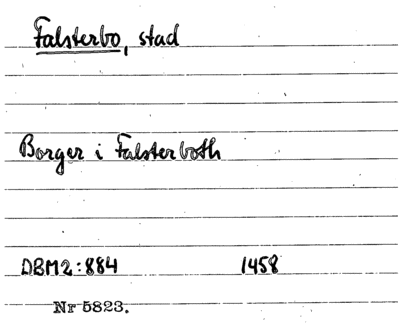 Falsterbo, stad
Borger i Falsterboth
DBM2:884 1458
Nr 5823.